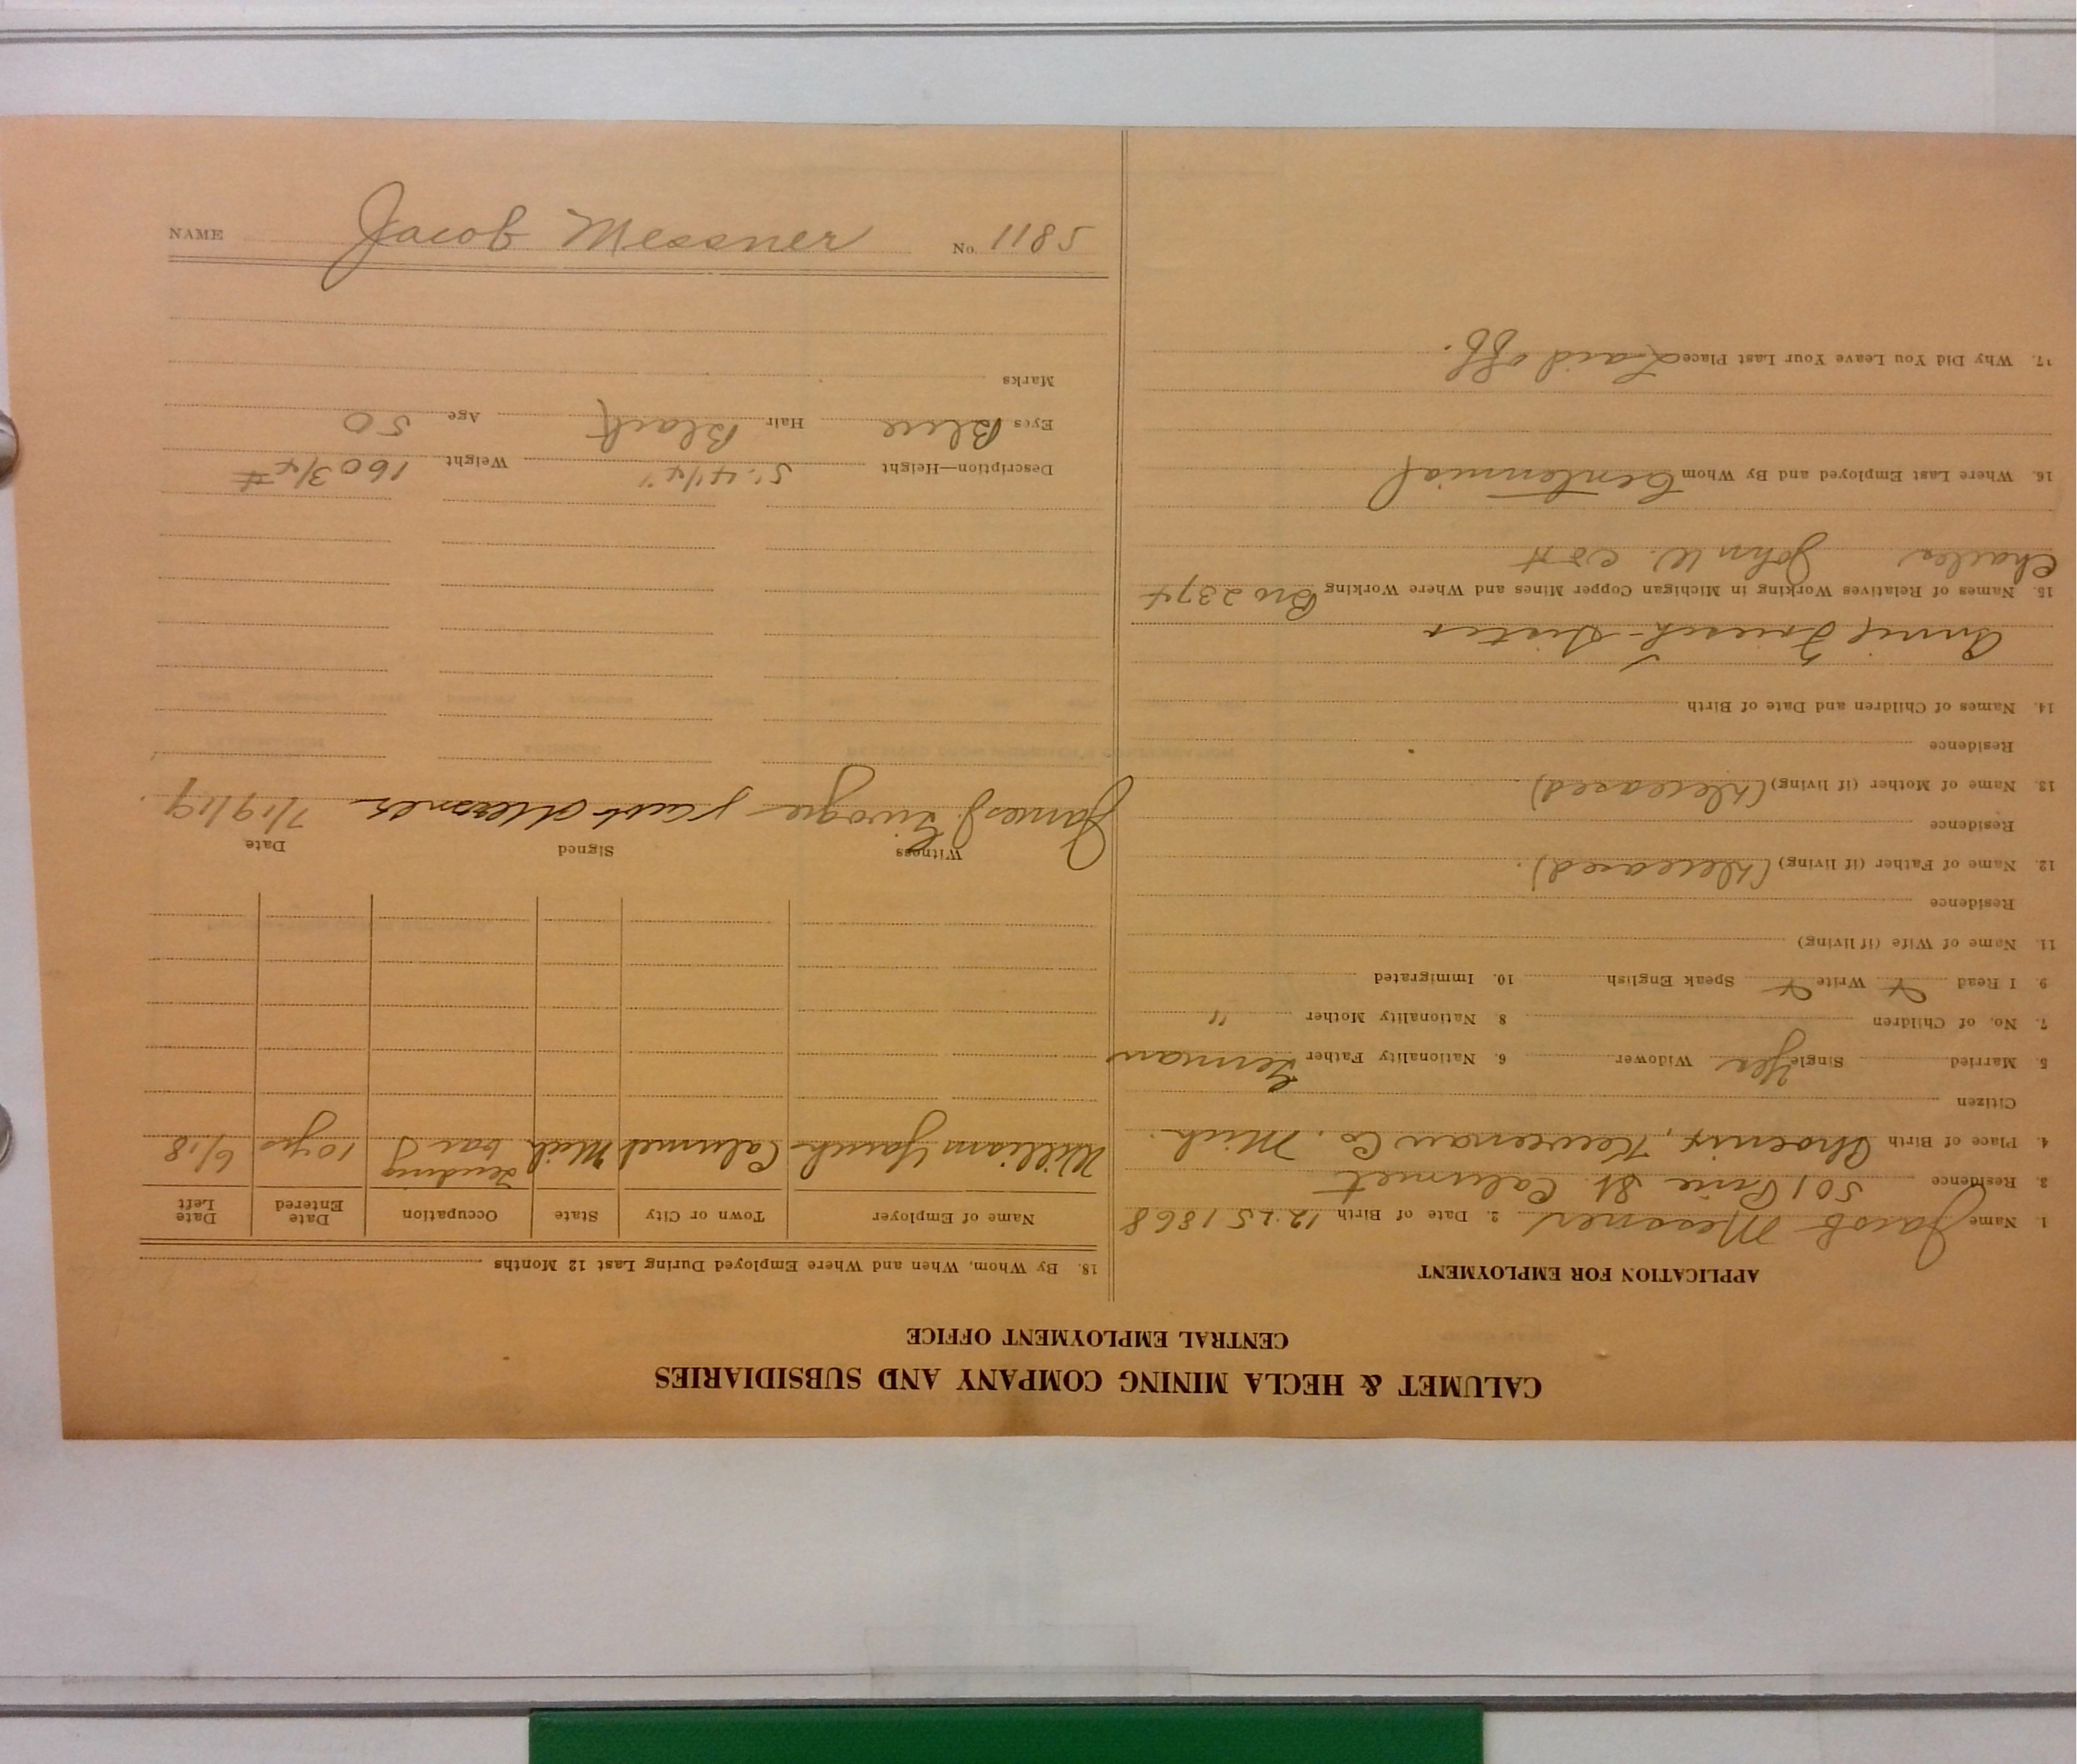 CALUMET & HECLA MINING COMPANY AND SUBSIDIARIES
CENTRAL EMPLOYMENT OFFICE
APPLICATION FOR EMPLOYMENT
1. Name Jacob Messner 2. Date of Birth 12.25 1868
3. Residence 501 Pine St. Calumet
4. Place of Birth Phoenix, Keweenaw Co. Mich.
Citizen
5. Married Single Yes Widower 6. Nationality Father German
7. No. of Children 8 Nationality Mother "
9. I Read Write Speak English 10. Immigrated
11. Name of Wife (if living)
Residence
12. Name of Father (if living) (Deceased).
Residence
13. Name of Mother (if living) (Deceased).
Residence
14. Names of Children and Date of Birth
Annie - Sister
15. Names of Relatives Working in Michigan Copper Mines and Where Working Bro 2374
Charles John W. C & H
16. Where Last Employed and By Whom Centennial
17. Why Did You Leave Your Last Place Laid off.
18. By Whom, When and Where Employed During Last 12 Months
Name of Employer Town or City State Occupation Date Entered Date Left
William Calumet Mich Tending bar 10 yrs 6/18
Witness Signed Date
James J. Jacob Messner 7/19/19
Description—Height 5' 4 1/4" Weight 160 3/4 #
Eyes Blue Hair Black Age 50
Marks
NAME Jacob Messner No. 1185